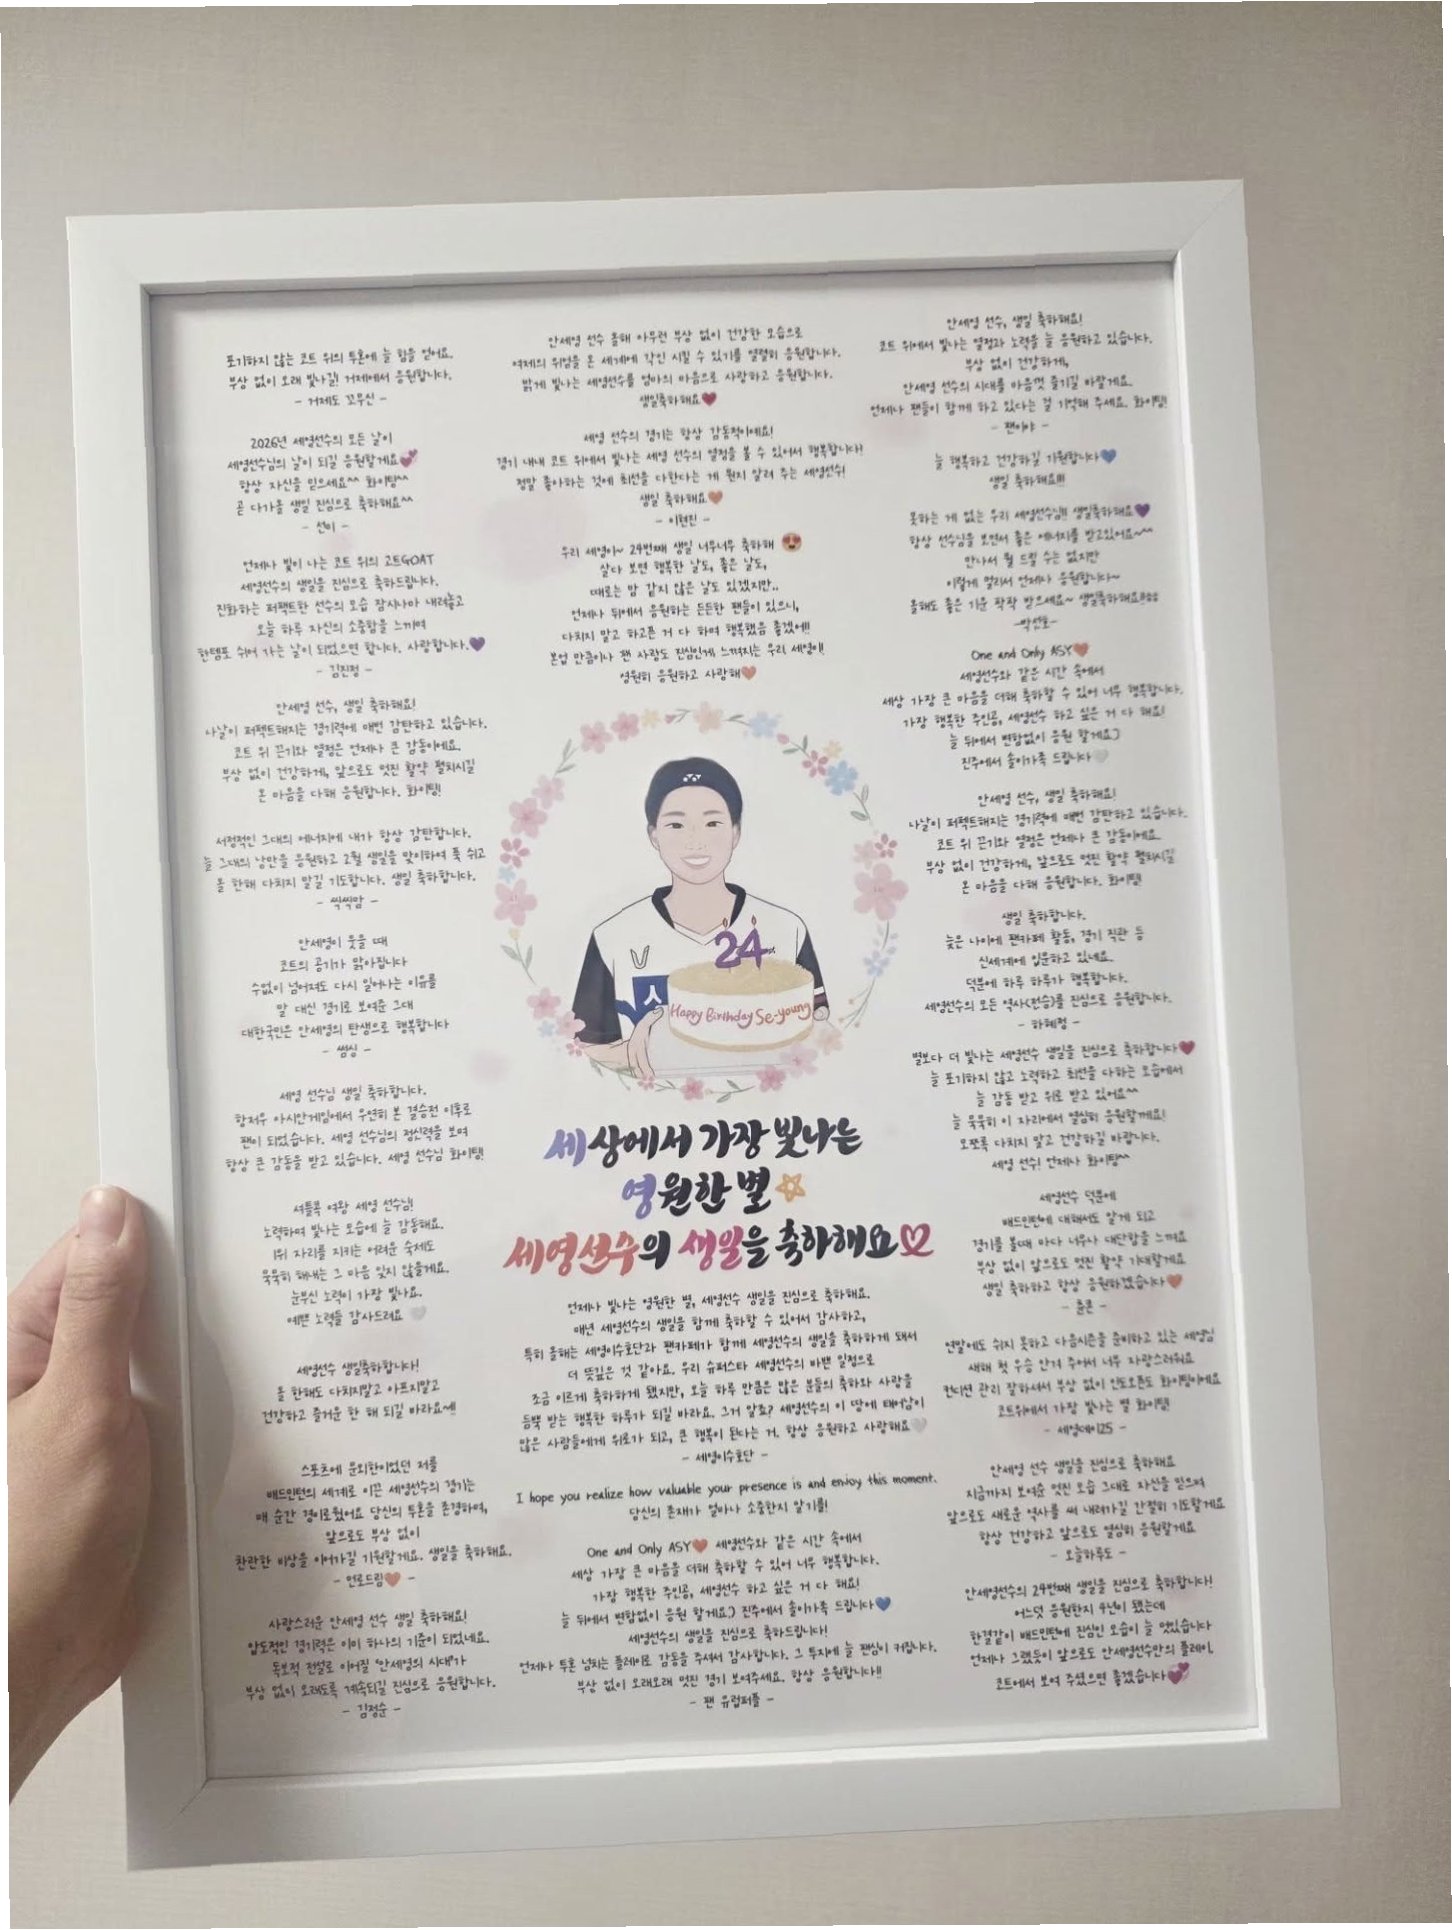 포기하지 않는 코트 위의 투혼에 늘 힘을 얻어요.
부상 없이 오래 빛나길! 거제에서 응원합니다.
- 거제도 꼬우신 -
2026년 세영선수의 모든 날이
세영선수님의 날이 되길 응원할게요💕
항상 자신을 믿으세요^^ 화이팅^^
곧 다가올 생일 진심으로 축하해요^^
- 선이 -
언제나 빛이 나는 코트 위의 고트GOAT
세영선수의 생일을 진심으로 축하드립니다.
진화하는 퍼펙트한 선수의 모습 잠시나마 내려놓고
오늘 하루 자신의 소중함을 느끼며
한템포 쉬어 가는 날이 되었으면 합니다. 사랑합니다.💜
- 김진정 -
안세영 선수, 생일 축하해요!
나날이 퍼펙트해지는 경기력에 매번 감탄하고 있습니다.
코트 위 끈기와 열정은 언제나 큰 감동이에요.
부상 없이 건강하게, 앞으로도 멋진 활약 펼치시길
온 마음을 다해 응원합니다. 화이팅!
서정적인 그대의 에너지에 내가 항상 감탄합니다.
늘 그대의 낭만을 응원하고 2월 생일을 맞이하여 푹 쉬고
올 한해 다치지 말길 기도합니다. 생일 축하합니다.
- 씩씩맘 -
안세영이 웃을 때
코트의 공기가 맑아집니다
수없이 넘어져도 다시 일어나는 이유를
말 대신 경기로 보여준 그대
대한국민은 안세영의 탄생으로 행복합니다
- 썸싱 -
세영 선수님 생일 축하합니다.
항저우 아시안게임에서 우연히 본 결승전 이후로
팬이 되었습니다. 세영 선수님의 정신력을 보며
항상 큰 감동을 받고 있습니다. 세영 선수님 화이팅!
셔틀콕 여왕 세영 선수님!
노력하며 빛나는 모습에 늘 감동해요.
1위 자리를 지키는 어려운 숙제도
묵묵히 해내는 그 마음 잊지 않을게요.
눈부신 노력이 가장 빛나요.
예쁜 노력들 감사드려요 🤍
세영선수 생일축하합니다!
올 한해도 다치지말고 아프지말고
건강하고 즐거운 한 해 되길 바라요~!!
스포츠에 문외한이었던 저를
배드민턴의 세계로 이끈 세영선수의 경기는
매 순간 경이로웠어요 당신의 투혼을 존경하며,
앞으로도 부상 없이
찬란한 비상을 이어가길 기원할게요. 생일을 축하해요.
- 언로드림🧡 -
사랑스러운 안세영 선수 생일 축하해요!
압도적인 경기력은 이미 하나의 기준이 되었네요.
독보적 전설로 이어질 '안세영의 시대'가
부상 없이 오래도록 계속되길 진심으로 응원합니다.
- 김정순 -
안세영 선수 올해 아무런 부상 없이 건강한 모습으로
여제의 위엄을 온 세계에 각인 시킬 수 있기를 열렬히 응원합니다.
밝게 빛나는 세영선수를 엄마의 마음으로 사랑하고 응원합니다.
생일축하해요❤
세영 선수의 경기는 항상 감동적이에요!
경기 내내 코트 위에서 빛나는 세영 선수의 열정을 볼 수 있어서 행복합니다!
정말 좋아하는 것에 최선을 다한다는 게 뭔지 알려 주는 세영선수!
생일 축하해요🧡
- 이현진 -
우리 세영이~ 24번째 생일 너무너무 축하해 😍
살다 보면 행복한 날도, 좋은 날도,
때로는 맘 같지 않은 날도 있겠지만..
언제나 뒤에서 응원하는 든든한 팬들이 있으니,
다치지 말고 하고픈 거 다 하며 행복했음 좋겠어!!
본업 만큼이나 팬 사랑도 진심인게 느껴지는 우리 세영이!
영원히 응원하고 사랑해🧡
24
Happy Birthday Se-young
세상에서 가장 빛나는
영원한 별
세영선수의 생일을 축하해요
언제나 빛나는 영원한 별, 세영선수 생일을 진심으로 축하해요.
매년 세영선수의 생일을 함께 축하할 수 있어서 감사하고,
특히 올해는 세영이수호단과 팬카페가 함께 세영선수의 생일을 축하하게 돼서
더 뜻깊은 것 같아요. 우리 슈퍼스타 세영선수의 바쁜 일정으로
조금 이르게 축하하게 됐지만, 오늘 하루 만큼은 많은 분들의 축하와 사랑을
듬뿍 받는 행복한 하루가 되길 바라요. 그거 알죠? 세영선수의 이 땅에 태어남이
많은 사람들에게 위로가 되고, 큰 행복이 된다는 거. 항상 응원하고 사랑해요🤍
- 세영이수호단 -
I hope you realize how valuable your presence is and enjoy this moment.
당신의 존재가 얼마나 소중한지 알기를!
One and Only ASY🧡 세영선수와 같은 시간 속에서
세상 가장 큰 마음을 더해 축하할 수 있어 너무 행복합니다.
가장 행복한 주인공, 세영선수 하고 싶은 거 다 해요!
늘 뒤에서 변함없이 응원 할게요:) 진주에서 솔이가족 드립니다💙
세영선수의 생일을 진심으로 축하드립니다!
언제나 투혼 넘치는 플레이로 감동을 주셔서 감사합니다. 그 투지에 늘 팬심이 커집니다.
부상 없이 오래오래 멋진 경기 보여주세요. 항상 응원합니다!!
- 팬 유럽퍼플 -
안세영 선수, 생일 축하해요!
코트 위에서 빛나는 열정과 노력을 늘 응원하고 있습니다.
부상 없이 건강하게,
안세영 선수의 시대를 마음껏 즐기길 바랄게요.
언제나 팬들이 함께 하고 있다는 걸 기억해 주세요. 화이팅!
- 팬이야 -
늘 행복하고 건강하길 기원합니다💙
생일 축하해요!!!
못하는 게 없는 우리 세영선수님!! 생일축하해요💜
항상 선수님을 보면서 좋은 에너지를 받고있어요~^^
만나서 뭘 드릴 수는 없지만
이렇게 멀리서 언제나 응원합니다~
올해도 좋은 기운 팍팍 받으세요~ 생일축하해요!!
-박선호-
One and Only ASY🧡
세영선수와 같은 시간 속에서
세상 가장 큰 마음을 더해 축하할 수 있어 너무 행복합니다.
가장 행복한 주인공, 세영선수 하고 싶은 거 다 해요!
늘 뒤에서 변함없이 응원 할게요:)
진주에서 솔이가족 드립니다🤍
안세영 선수, 생일 축하해요!
나날이 퍼펙트해지는 경기력에 매번 감탄하고 있습니다.
코트 위 끈기와 열정은 언제나 큰 감동이에요.
부상 없이 건강하게, 앞으로도 멋진 활약 펼치시길
온 마음을 다해 응원합니다. 화이팅!
생일 축하합니다.
늦은 나이에 팬카페 활동, 경기 직관 등
신세계에 입문하고 있네요.
덕분에 하루 하루가 행복합니다.
세영선수의 모든 역사(전승)를 진심으로 응원합니다.
- 하혜정 -
별보다 더 빛나는 세영선수 생일을 진심으로 축하합니다❤
늘 포기하지 않고 노력하고 최선을 다하는 모습에서
늘 감동 받고 위로 받고 있어요^^
늘 묵묵히 이 자리에서 열심히 응원할게요!
오쪼록 다치지 말고 건강하길 바랍니다.
세영 선수! 언제나 화이팅^^
세영선수 덕분에
배드민턴에 대해서도 알게 되고
경기를 볼때 마다 너무나 대단함을 느껴요
부상 없이 앞으로도 멋진 활약 기대할게요
생일 축하하고 항상 응원하겠습니다🧡
- 훈존 -
연말에도 쉬지 못하고 다음시즌을 준비하고 있는 세영님
새해 첫 우승 안겨 주어서 너무 자랑스러워요
컨디션 관리 잘하셔서 부상 없이 인도오픈도 화이팅이에요
코트위에서 가장 빛나는 별 화이팅!
- 세영데이25 -
안세영 선수 생일을 진심으로 축하해요
지금까지 보여준 멋진 모습 그대로 자신을 믿으며
앞으로도 새로운 역사를 써 내려가길 간절히 기도할게요
항상 건강하고 앞으로도 열심히 응원할게요
- 오늘하루도 -
안세영선수의 24번째 생일을 진심으로 축하합니다!
어느덧 응원한지 4년이 됐는데
한결같이 배드민턴에 진심인 모습이 늘 멋있습니다
언제나 그랬듯이 앞으로도 안세영선수만의 플레이,
코트에서 보여 주셨으면 좋겠습니다💕